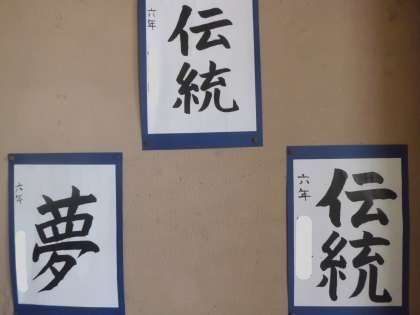 六年
伝統
六年
夢
六年
伝統